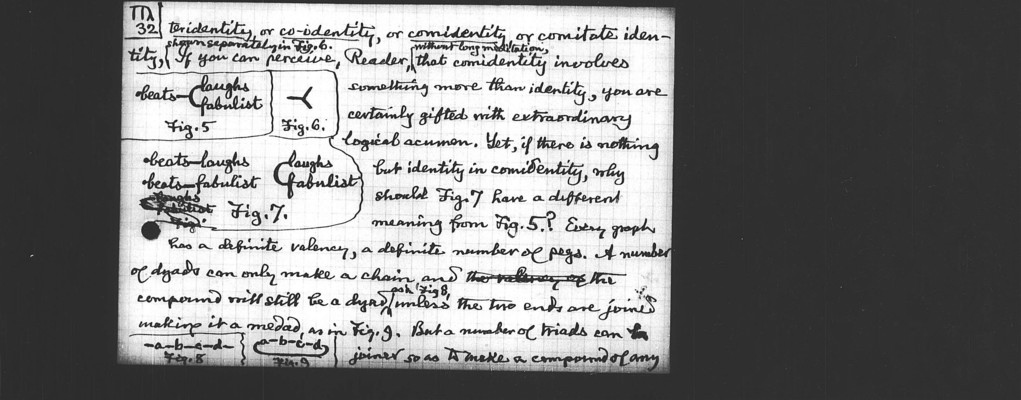 ΠΛ
32
teridentity, or co-identity, or comidentity or comitate iden-
shown separately in Fig. 6.
without long meditation,
tity, If you can perceive, Reader, that comidentity involves
beats laughs
fabulist
Fig. 5
Fig. 6.
something more than identity, you are
certainly gifted with extraordinary
logical acumen. Yet, if there is nothing
beats—laughs
beats—fabulist
laughs
fabulist
Fig. 7.
but identity in comidentity, why
should Fig. 7 have a different
meaning from Fig. 5.? Every graph
has a definite valency, a definite number of pegs. A number
of dyads can only make a chain and the valency of the
as in Fig 8,
compound will still be a dyad, unless the two ends are joined
making it a medad, as in Fig. 9. But a number of triads can
-a-b-c-d-
Fig. 8
a-b-c-d
Fig. 9
joined so as to make a compound of any